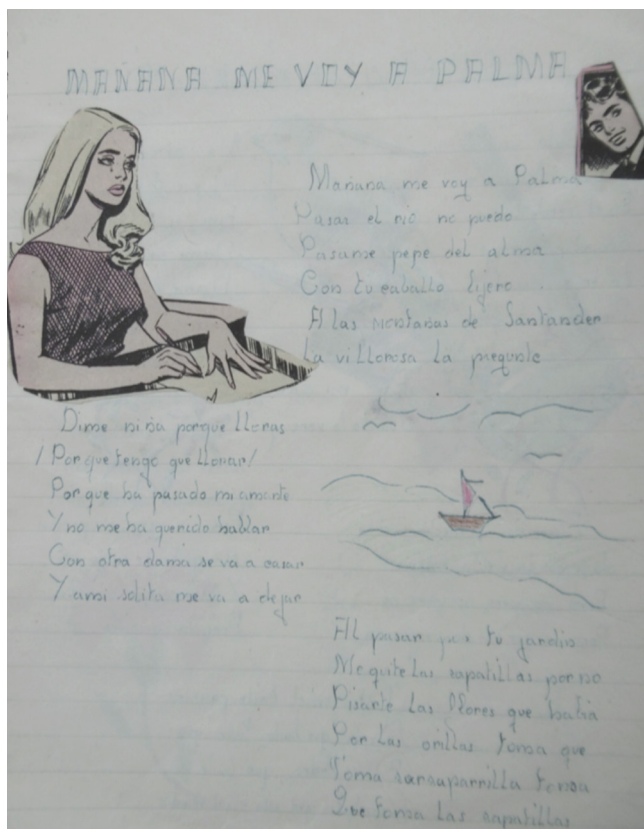 MAÑANA ME VOY A PALMA
Mañana me voy a Palma
Pasar el río no puedo
Pasame pepe del alma
Con tu caballo lijero
A las montañas de Santander
La villorosa la pregunte
Dime niña porque lloras
/ Por que tengo que llorar /
Por que ha pasado mi amante
Y no me ha querido hablar
Con otra dama se va a casar
Y ami solita me va a dejar
Al pasar por tu jardin
Me quite las zapatillas por no
Pisarte las flores que habia
Por las orillas toma que
Toma zarzaparrilla toma
Que toma las zapatillas